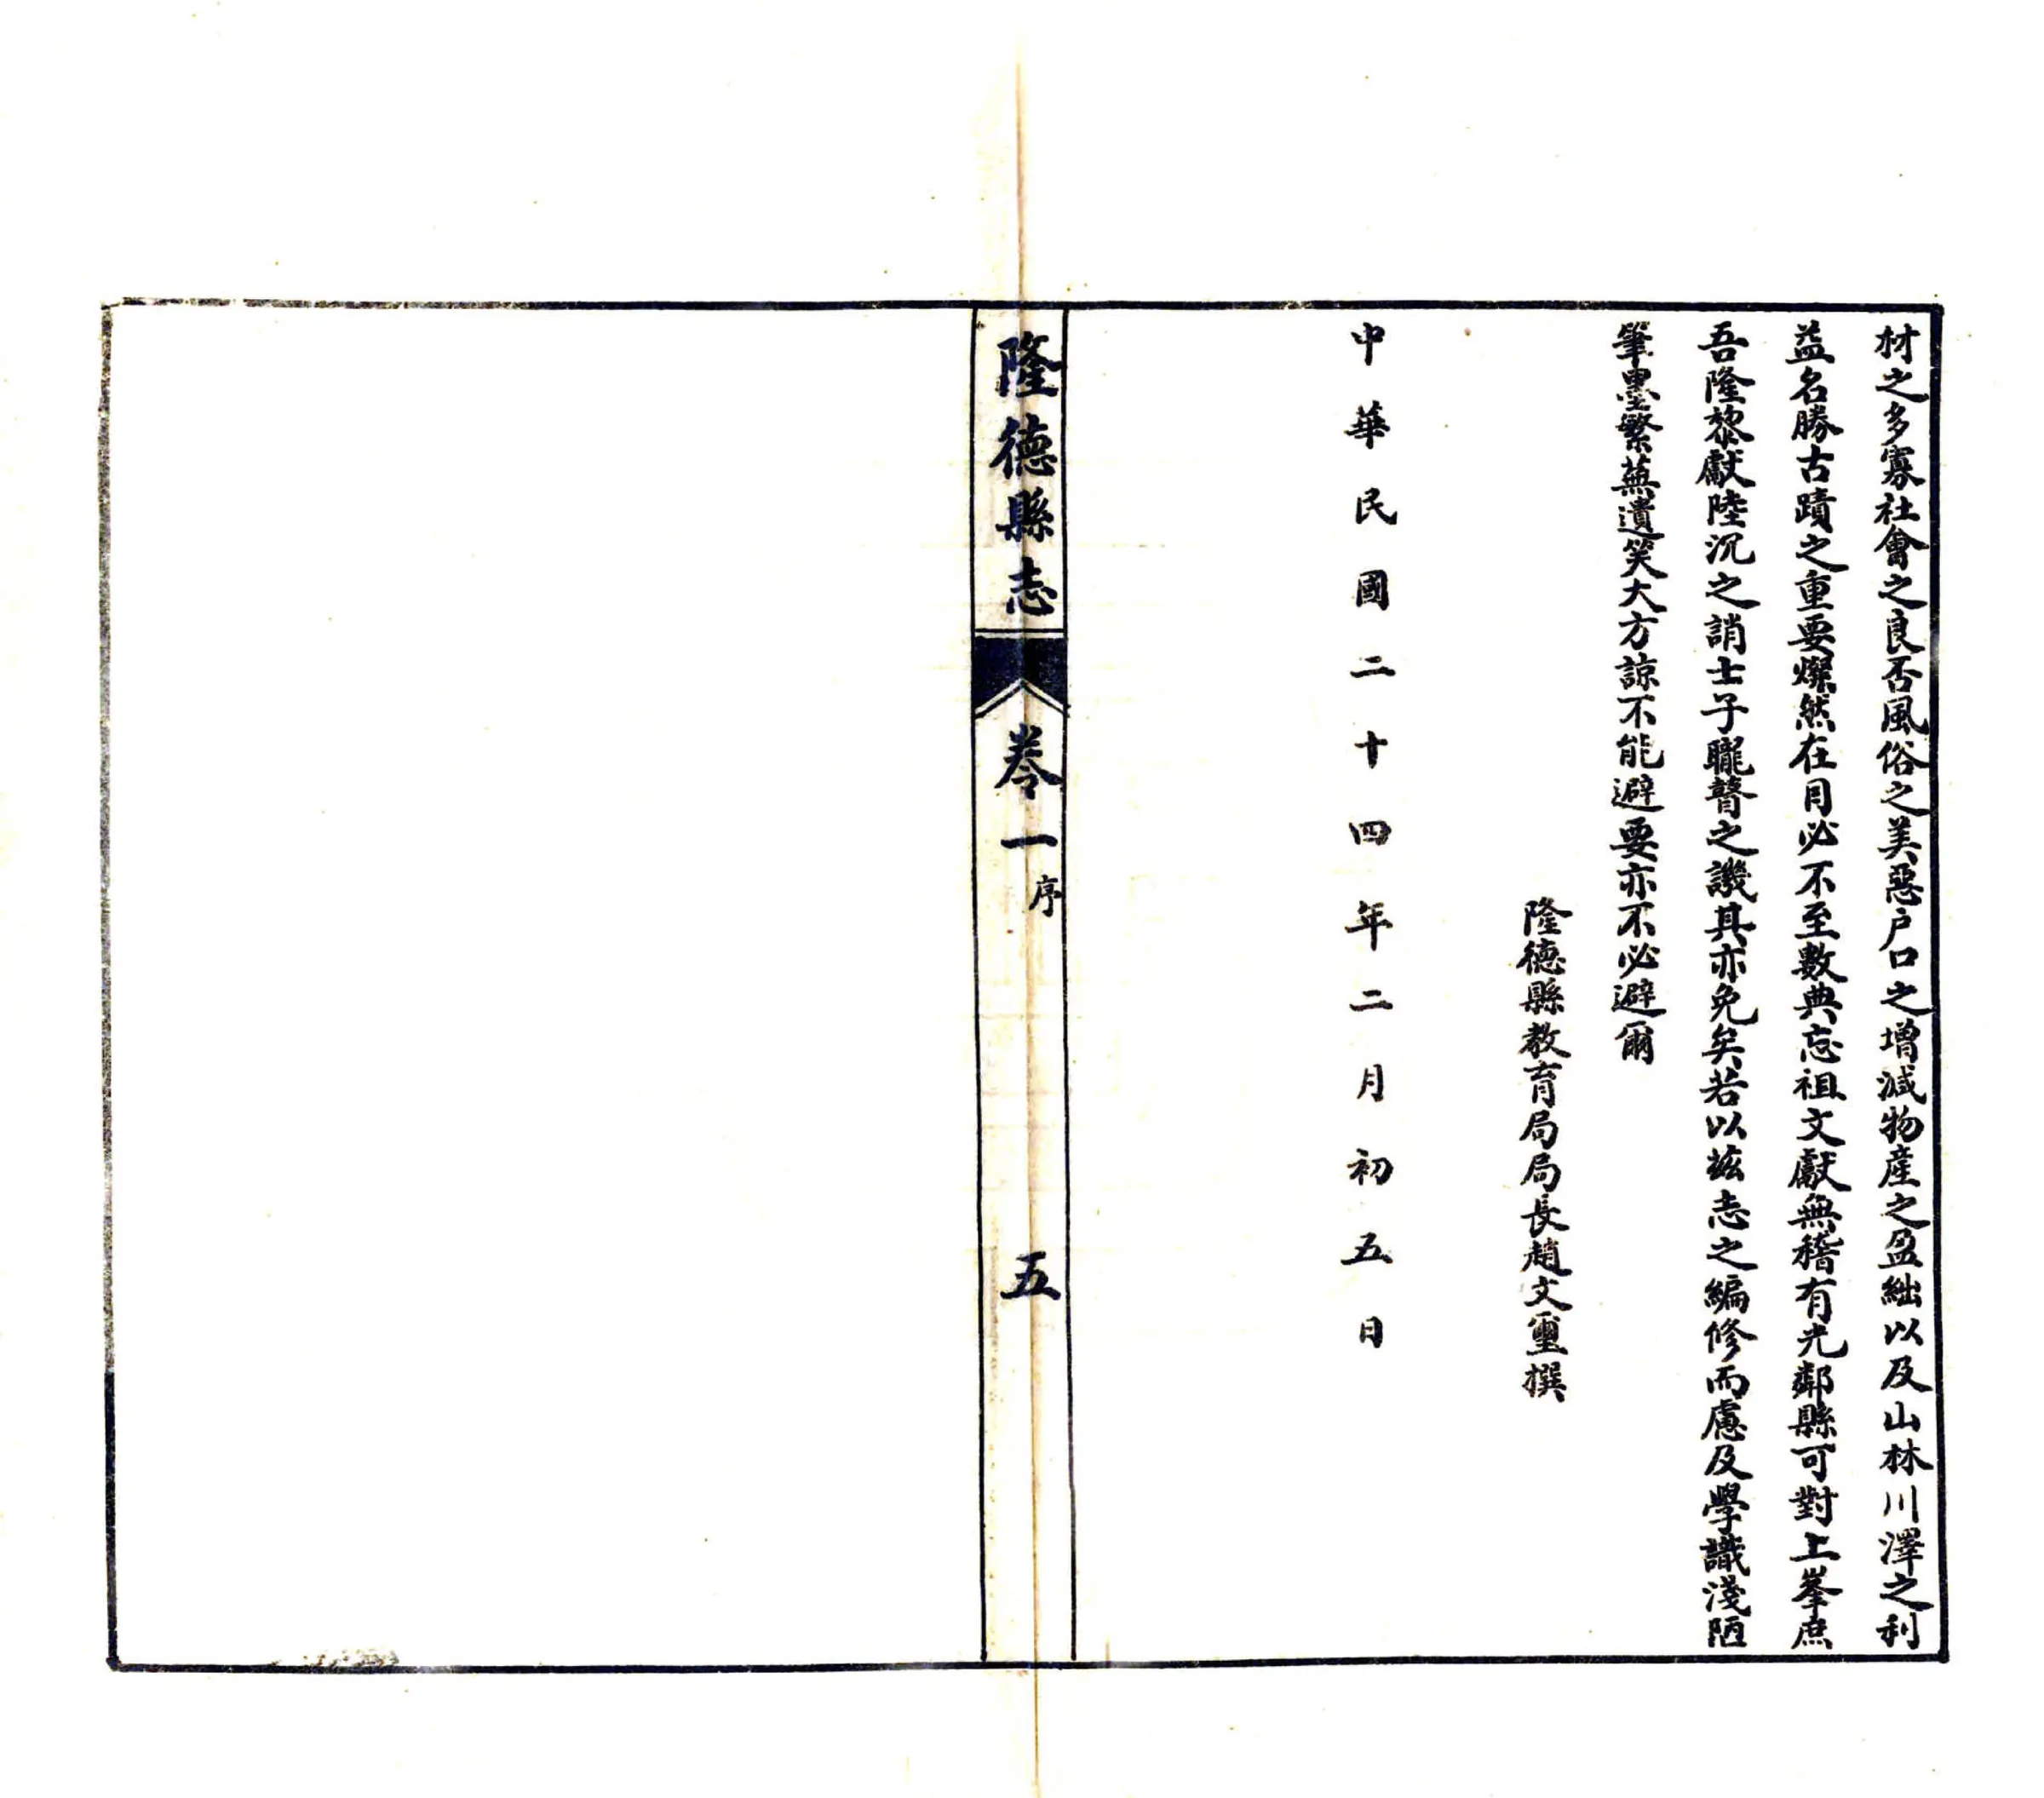 材之多寡社會之良否風俗之美惡户口之增減物產之盈絀以及山林川澤之利
益名勝古蹟之重要燦然在目必不至數典忘祖文獻無稽有光鄰縣可對上峯庶
吾隆黎獻陸沉之誚士子矓瞽之譏其亦免矣若以兹志之編修而慮及學識淺陋
筆墨繁蕪遺笑大方諒不能避要亦不必避爾
隆德縣教育局局長趙文璽撰
中華民國二十四年二月初五日
隆德縣志
卷一
序
五